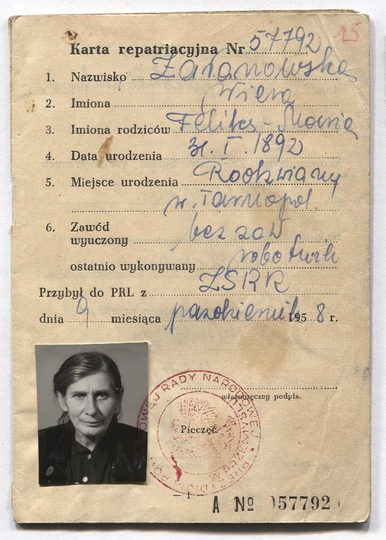 25
Karta repatriacyjna Nr 57792
1. Nazwisko Zaranowska
2. Imiona Wiera
3. Imiona rodziców Feliks - Maria
4. Data urodzenia 31. I. 1892
5. Miejsce urodzenia
w. Tarnopol
6. Zawód
wyuczony bez zaw
ostatnio wykonywany robotnik
Przybył do PRL z ZSRR
dnia 9 miesiąca październik 1958 r.
własnoręczny podpis
Pieczęć
RADY NARODOWEJ
— 1 —
A № 057792